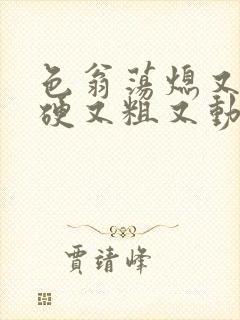 色翁荡熄又
硬又粗又動
贾靖峰